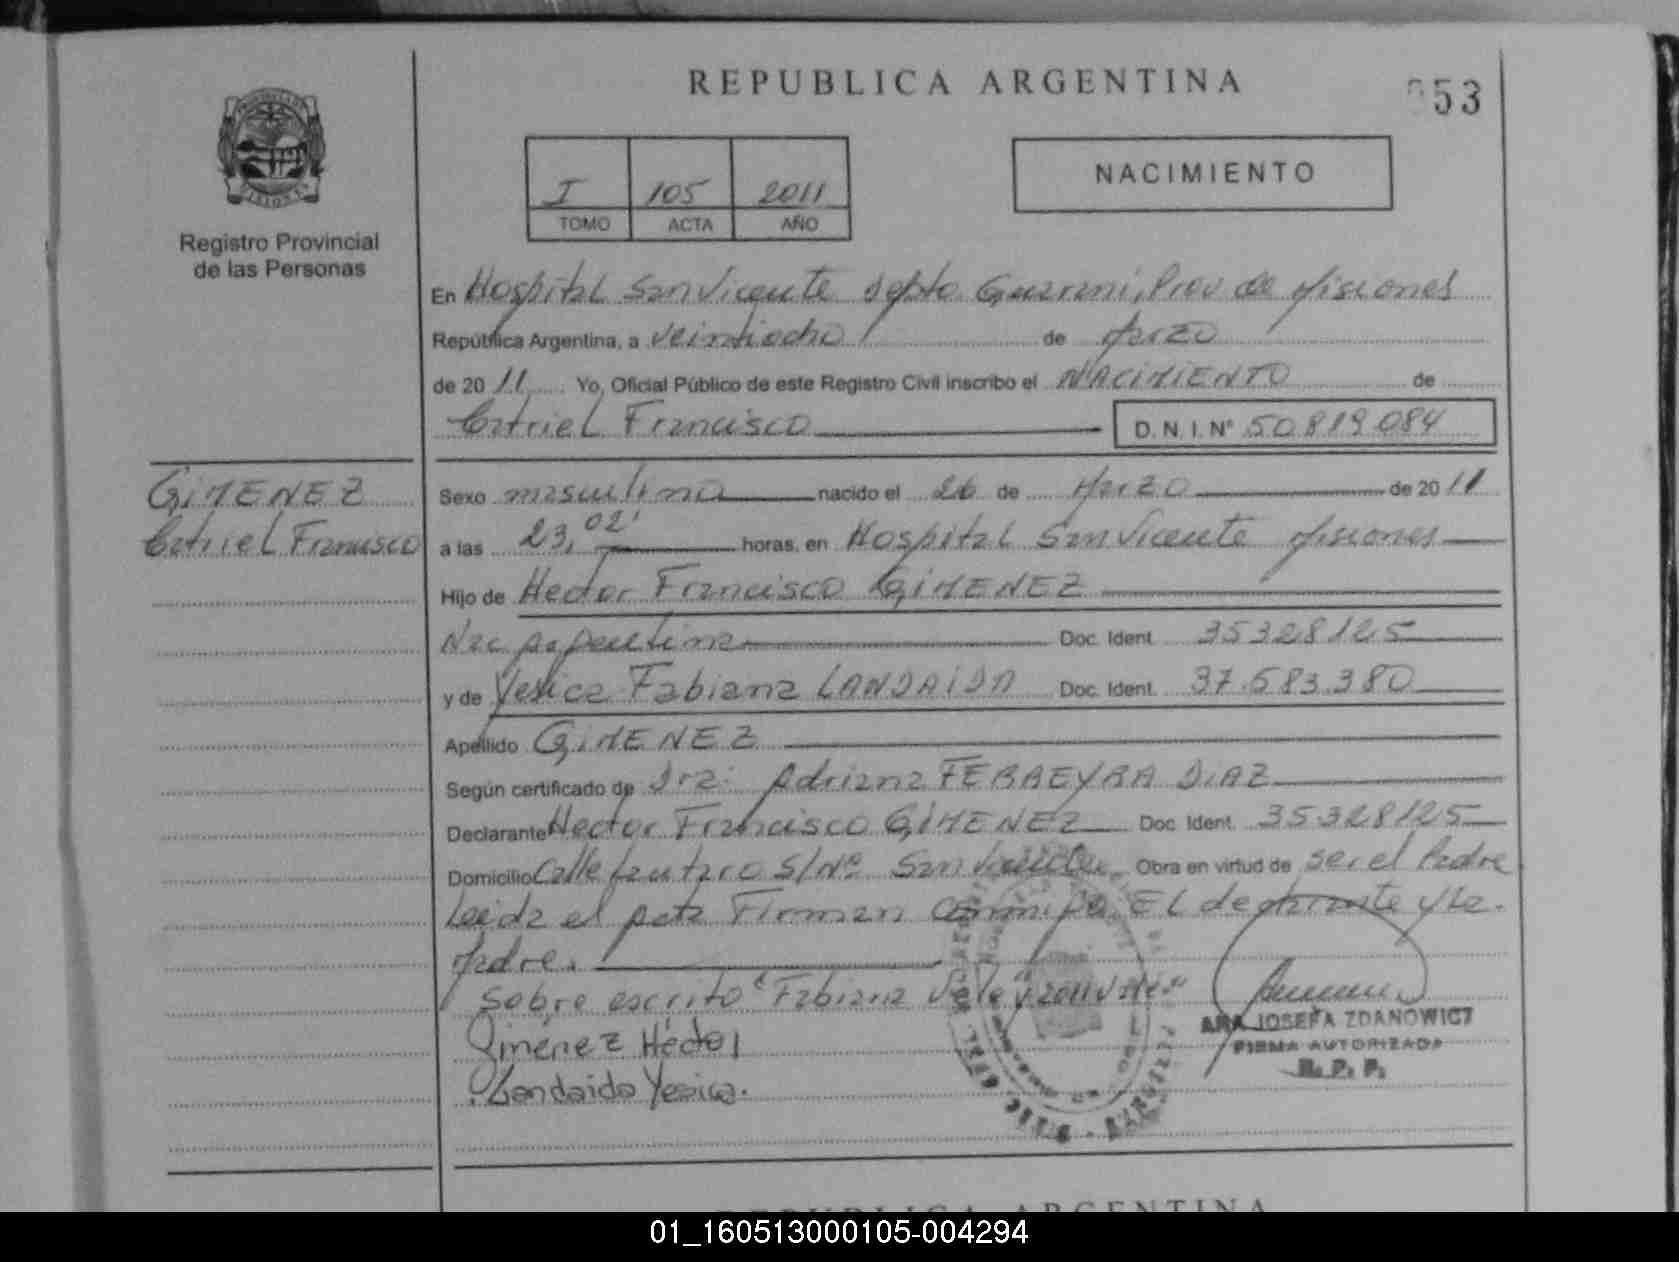 REPUBLICA ARGENTINA
053
PROVINCIA DE
MISIONES
Registro Provincial
de las Personas
I 105 2011
TOMO ACTA AÑO
NACIMIENTO
En Hospital San Vicente Depto. Guarani, Prov de Misiones
República Argentina, a veintiocho de Marzo
de 20 11 Yo, Oficial Público de este Registro Civil inscribo el NACIMIENTO de
Catriel Francisco D. N. I. N° 50.819.084
GIMENEZ
Catriel Francisco
Sexo masculino nacido el 26 de Marzo de 20 11
a las 23,02' horas, en Hospital San Vicente Misiones
Hijo de Hector Francisco GIMENEZ
Nac. Argentina Doc. Ident. 35328125
y de Yesica Fabiana LANDAIDA Doc. Ident. 37.583.380
Apellido GIMENEZ
Según certificado de Dra: Adriana FERREYRA DIAZ
Declarante Hector Francisco GIMENEZ Doc. Ident. 35328125
Domicilio Calle Lautaro S/Nº San Vicente Obra en virtud de ser el Padre
Leida el Acta Firman Conmigo. El declarante y la
Madre.
Sobre escrito "Fabiana Vale" "2011 Vale"
Gimenez Héctor
Landaida Yesica.
ANA JOSEFA ZDANOWICZ
FIRMA AUTORIZADA
R. P. P.
REPUBLICA ARGENTINA
01_160513000105-004294